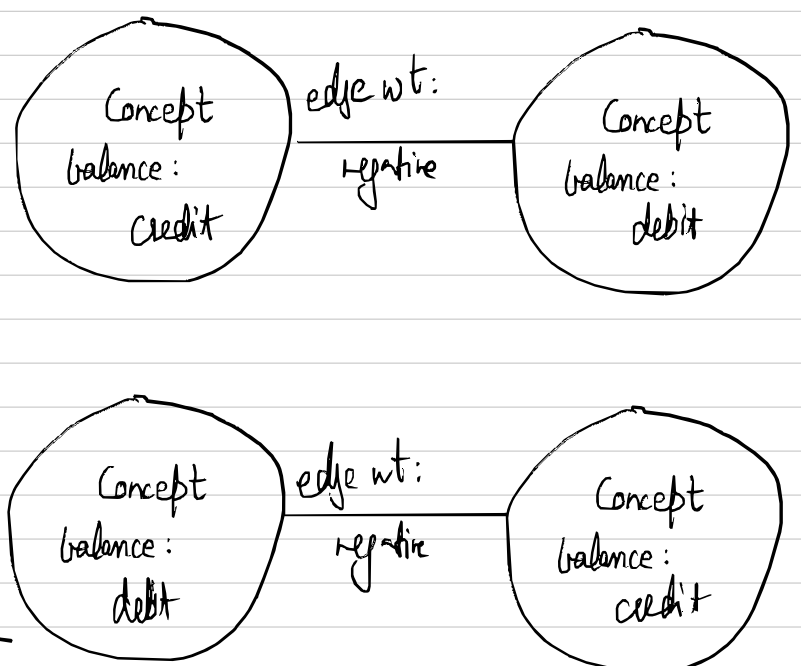 Concept
balance:
credit
edge wt:
negative
Concept
balance:
debit
Concept
balance:
debt
edge wt:
negative
Concept
balance:
credit